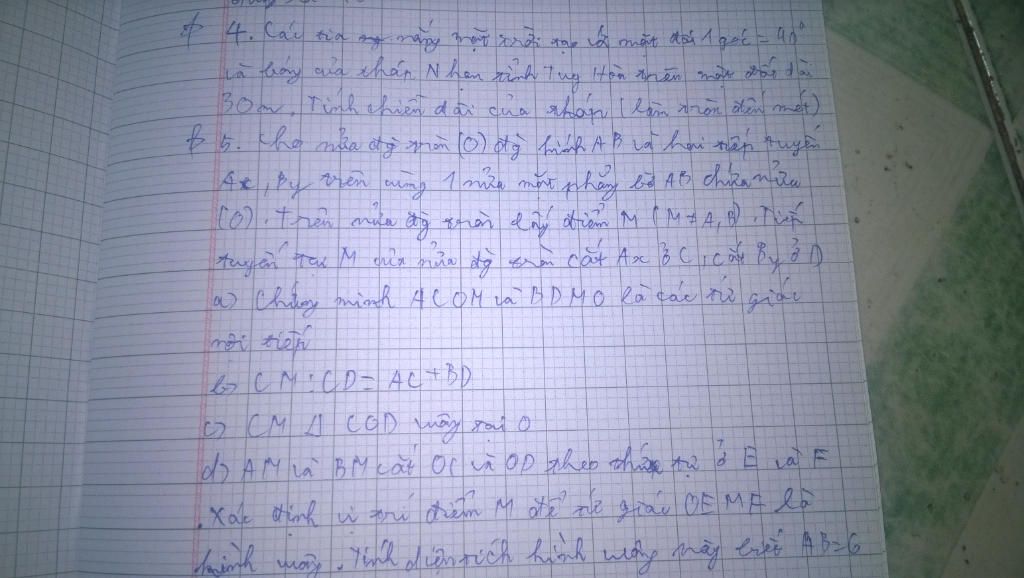 4. Các tia nắng mặt trời tạo với mặt đất 1 góc = 40°
và bóng của tháp Nhạn tỉnh Tuy Hòa trên mặt đất dài
30m. Tính chiều dài của tháp (làm tròn đến mét)
5. Cho nửa đg tròn (O) đg kính AB và hai tiếp tuyến
Ax, By trên cùng 1 nửa mặt phẳng bờ AB chứa nửa
(O). Trên nửa đg tròn lấy điểm M (M ≠ A, B). Tiếp
tuyến tại M của nửa đg tròn cắt Ax ở C, cắt By ở D
a) Chứng minh ACOM và BDMO là các tứ giác
nội tiếp
b) CM: CD = AC + BD
c) CM Δ COD vuông tại O
d) AM và BM cắt OC và OD theo thứ tự ở E và F
Xác định vị trí điểm M để tứ giác OEMF là
hình vuông. Tính diện tích hình vuông này biết AB = 6